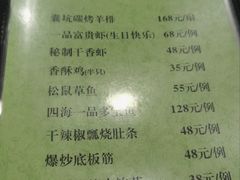 囊坑碳烤羊排 168元/扇
一品富贵虾(生日快乐) 68元/份
秘制干香虾 48元/份
香酥鸡(半只) 35元/份
松鼠草鱼 55元/份
四海一品多宝鱼 128元/份
干辣椒瓢烧肚条 48元/份
爆炒底板筋 48元/份
38元/例